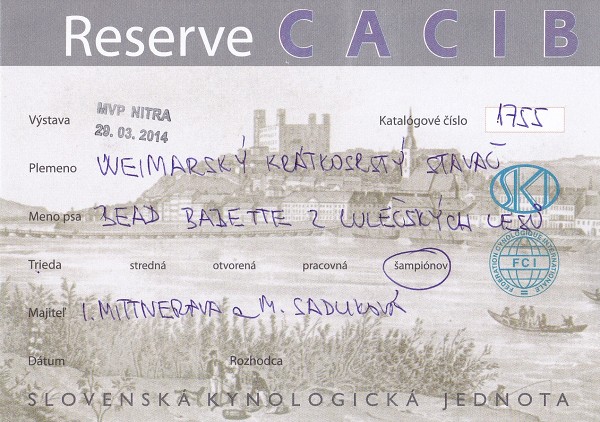 Reserve CACIB
Výstava MVP NITRA Katalógové číslo 1755
29. 03. 2014
Plemeno WEIMARSKÝ KRÁTKOSRSTÝ STAVAČ
SKJ
Meno psa BEAD BABETTE Z LULEČSKÝCH LESŮ
Trieda stredná otvorená pracovná šampiónov
FEDERATION CYNOLOGIQUE INTERNATIONALE
FCI
Majiteľ I. MITTNEROVA a M. SADLIKOVÁ
Dátum Rozhodca
SLOVENSKÁ KYNOLOGICKÁ JEDNOTA